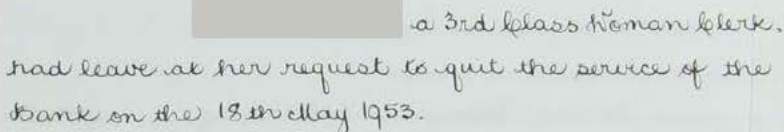 a 3rd Class Woman Clerk.
had leave at her request to quit the service of the
Bank on the 18th May 1953.